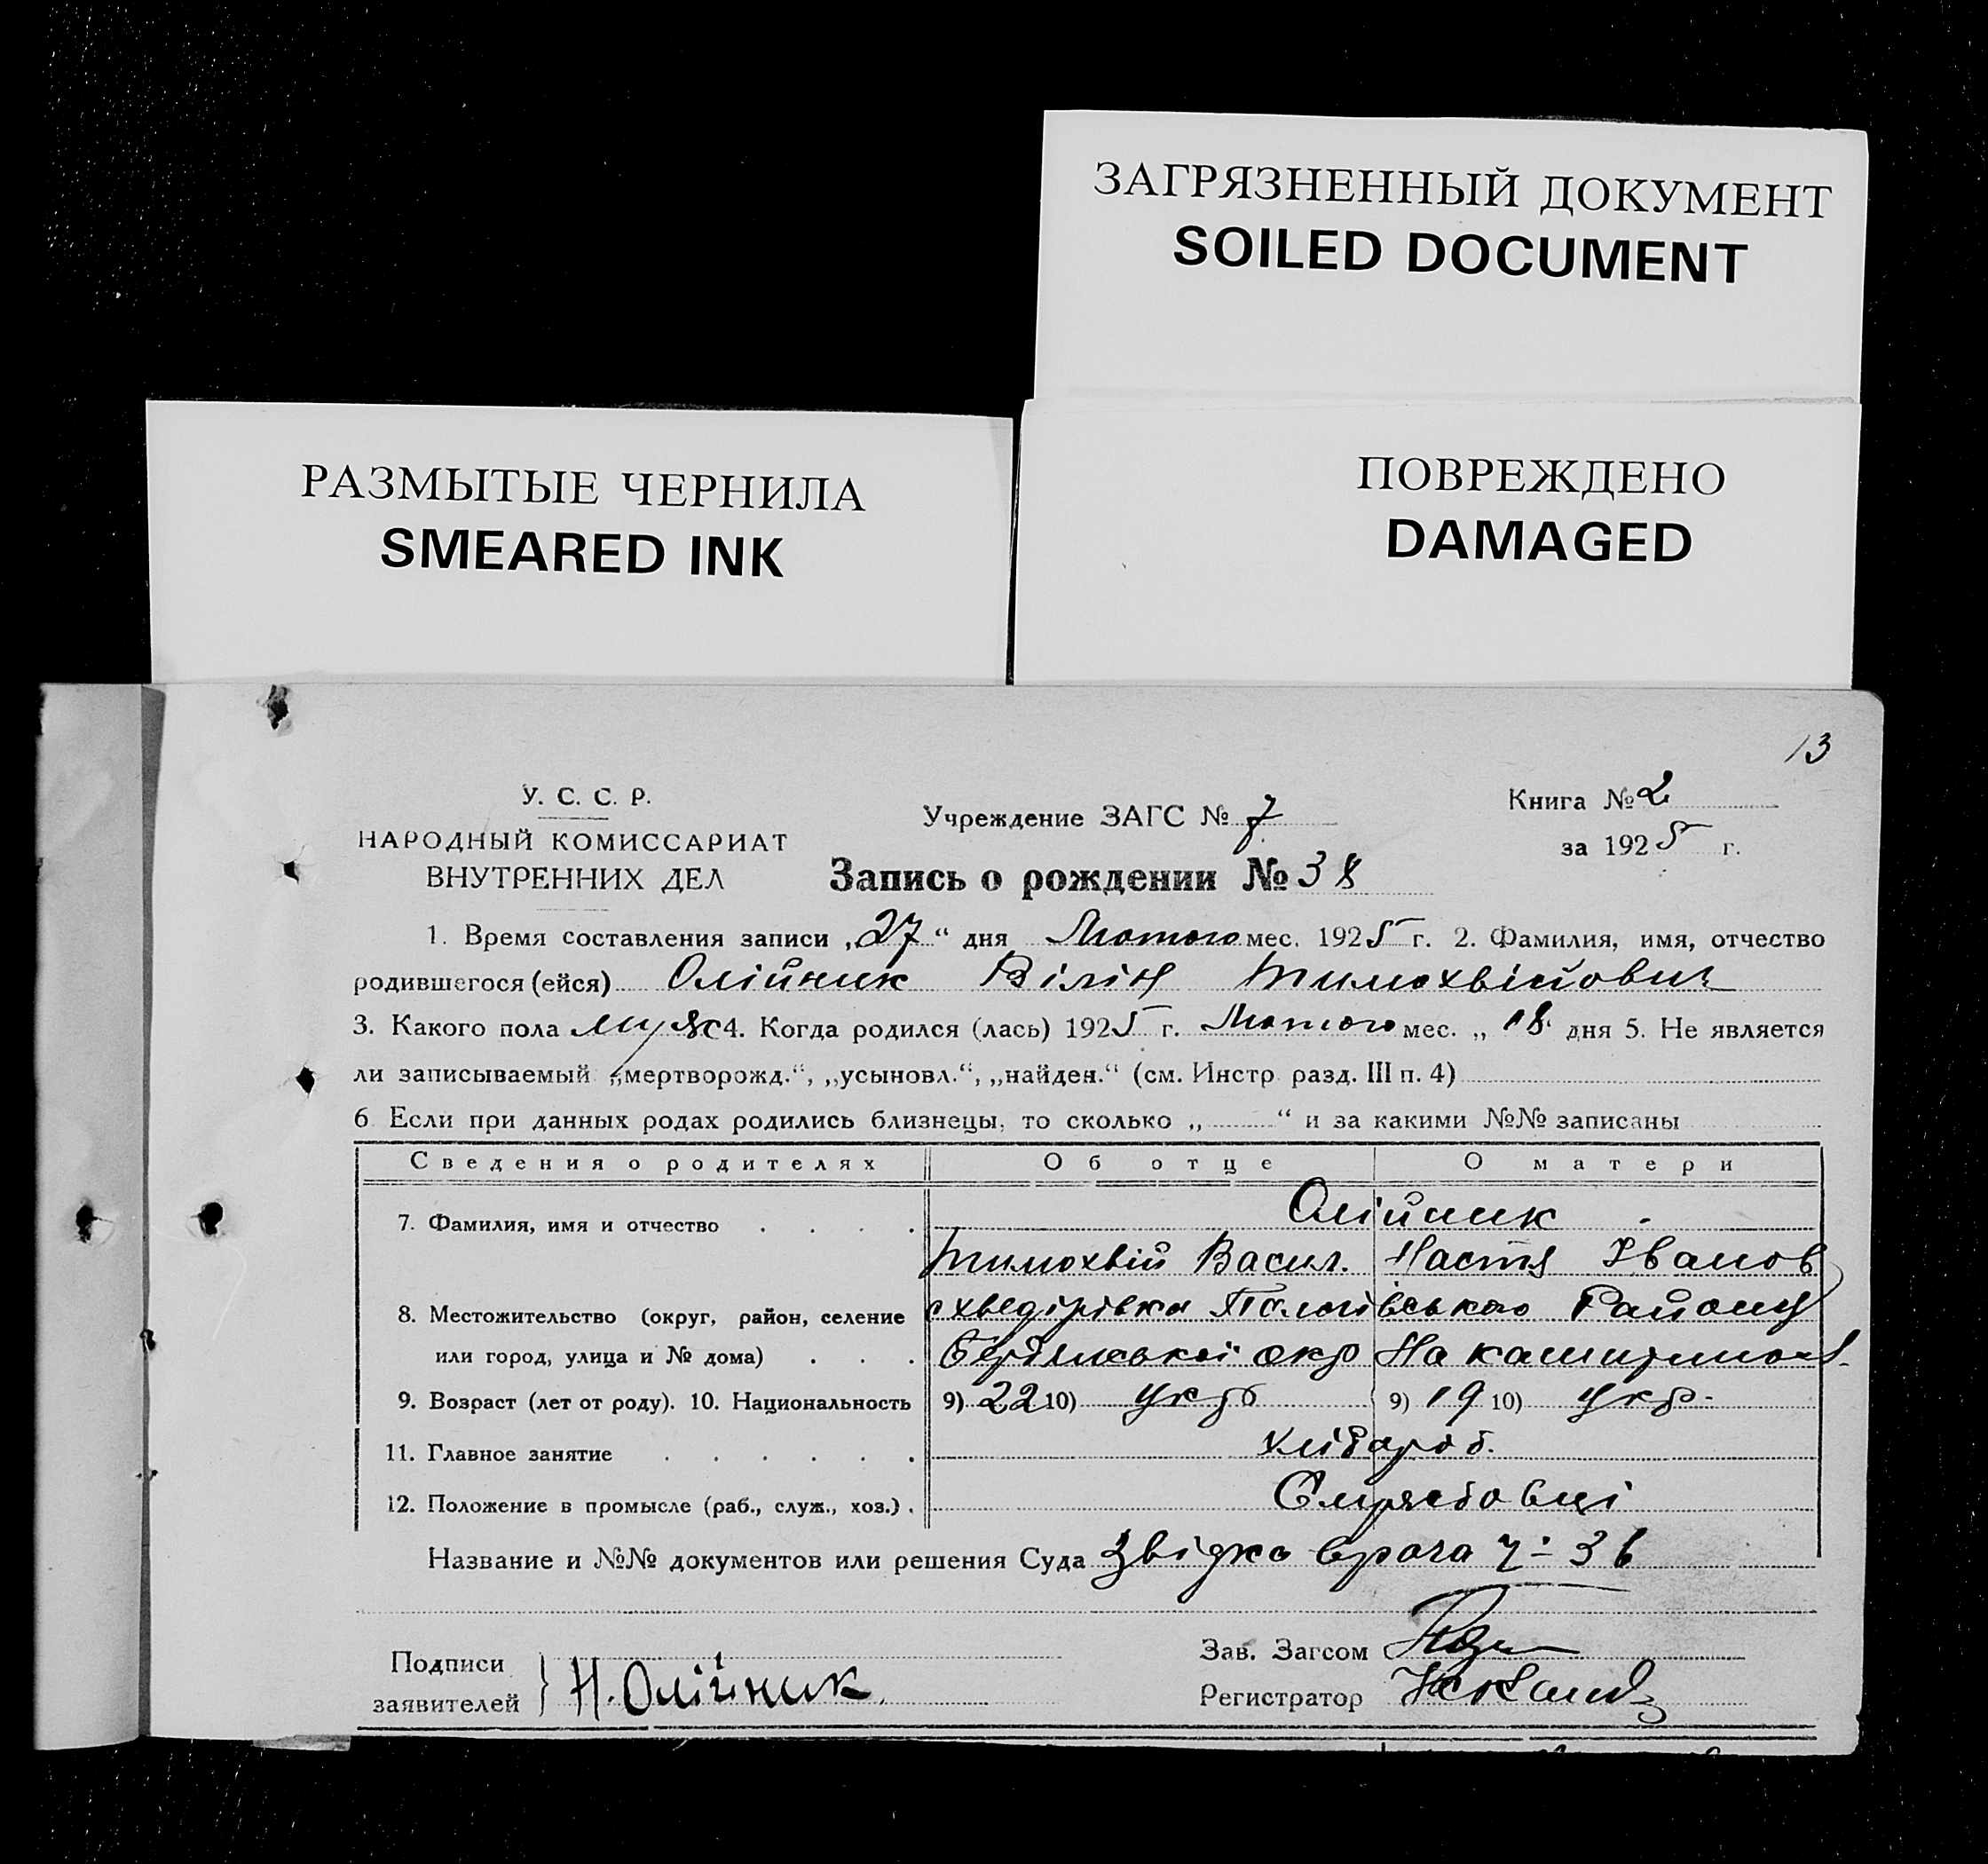 ЗАГРЯЗНЕННЫЙ ДОКУМЕНТ
SOILED DOCUMENT
РАЗМЫТЫЕ ЧЕРНИЛА
SMEARED INK
ПОВРЕЖДЕНО
DAMAGED
13
У. С. С. Р.
НАРОДНЫЙ КОМИССАРИАТ
ВНУТРЕННИХ ДЕЛ
Учреждение ЗАГС № 7
Книга № 2
за 1925 г.
Запись о рождении № 38
1. Время составления записи „27“ дня Лютого мес. 1925 г. 2. Фамилия, имя, отчество
родившегося (ейся) Олійник Вілін Тимохвійович
3. Какого пола муж 4. Когда родился (лась) 1925 г. Лютого мес. „18 дня 5. Не является
ли записываемый „мертворожд.“, „усыновл.“, „найден.“ (см. Инстр. разд. III п. 4)
6 Если при данных родах родились близнецы, то сколько „ “ и за какими №№ записаны
Сведения о родителях Об отце О матери
7. Фамилия, имя и отчество Олійник
Тимохвій Васил. Настя Іванов
8. Местожительство (округ, район, селение с хведірівка Пологівського Району
или город, улица и № дома) Бердянської окр
9. Возраст (лет от роду). 10. Национальность 9) 22 10) укр 9) 19 10) укр.
11. Главное занятие хлібароб.
12. Положение в промысле (раб., служ., хоз.)
Название и №№ документов или решения Суда Звідка врача ч- 36
Подписи
заявителей } Н. Олійник
Зав. Загсом
Регистратор